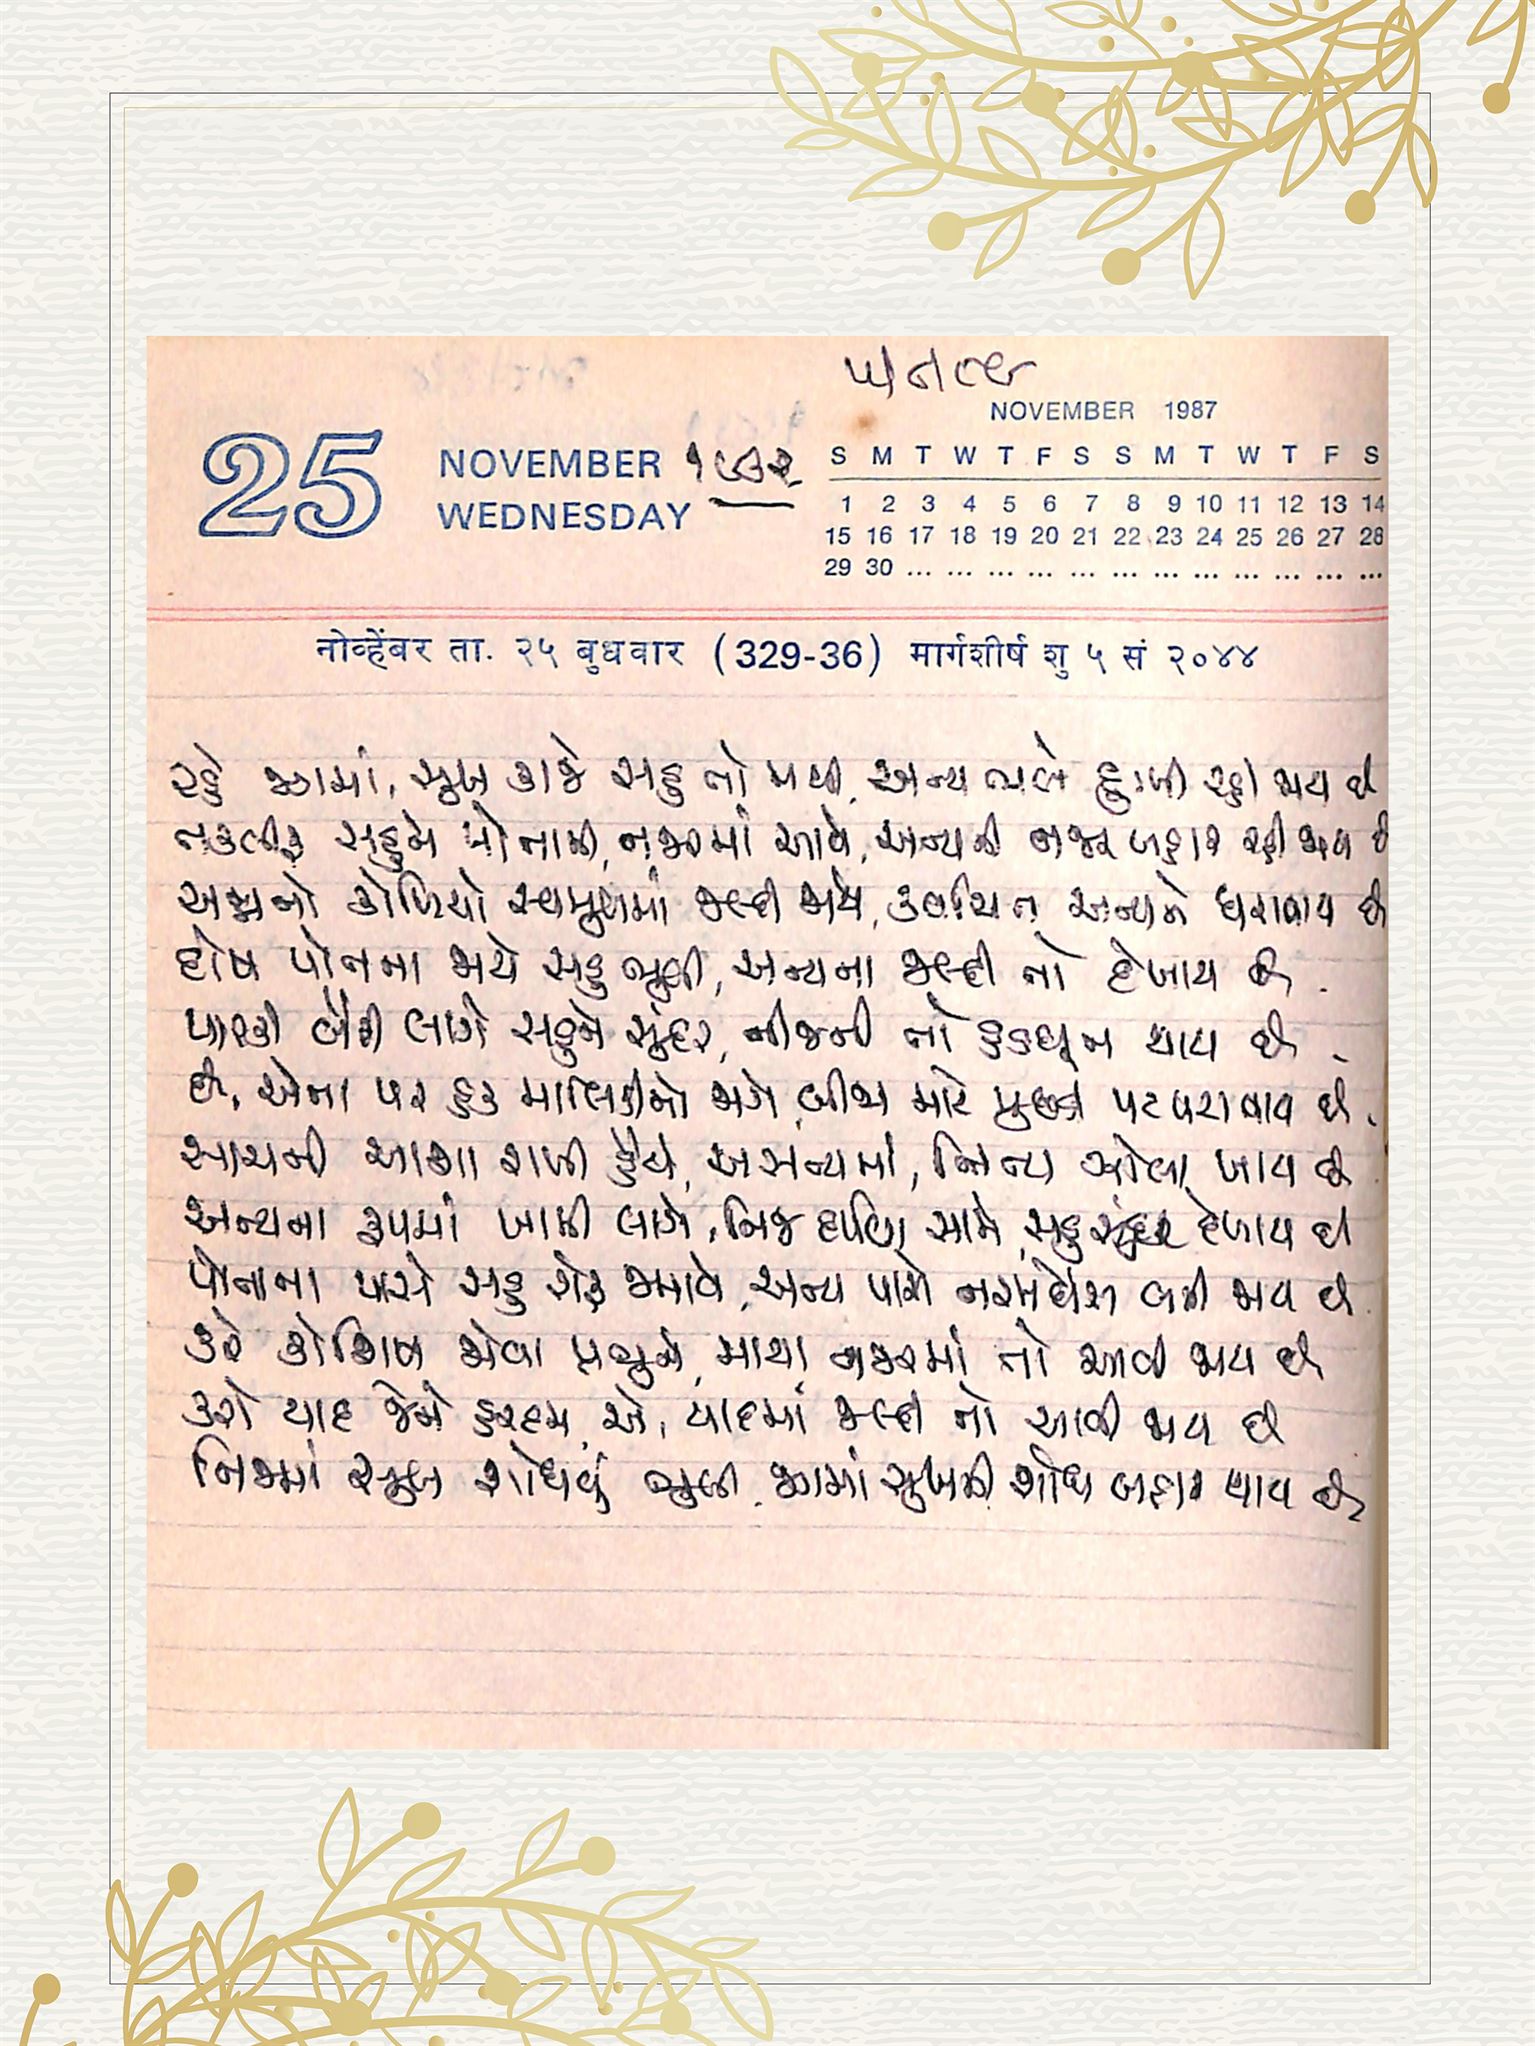 NOVEMBER 1987
25 NOVEMBER ૧૯૭૨
WEDNESDAY
S M T W T F S S M T W T F S
1 2 3 4 5 6 7 8 9 10 11 12 13 14
15 16 17 18 19 20 21 22 23 24 25 26 27 28
29 30 ... ... ... ... ... ... ... ... ... ... ... ...
नोव्हेंबर ता. २५ बुधवार (329-36) मार्गशीर्ष शु ५ सं २०४४
રહે જગમાં, સુખ કાજે સહુ તો મથી, અન્ય ભલે દુઃખી રહી જાય છે
તકલીફ સહુને પોતાની, નજરમાં આવે, અન્યની નજર બહાર રહી જાય છે
અન્નનો કોળિયો સ્વમુખમાં જલ્દી જાયે, કવચિત અન્યને ધરાવાય છે
દોષ પોતના જાયે સહુ ભૂલી, અન્યના જલ્દી તો દેખાય છે.
પારકી બૈરી લાગે સહુને સુંદર, નીજની તો હડધૂત થાય છે.
છે, એના પર હક માલિકીનો જાગે, બીજા માટે મુછડો પટપરાવાય છે.
સાચની આશા રાખી હૈયે, અસત્યમાં, નિત્ય ઝોલા ખાય છે
અન્યના રૂપમાં ખામી લાગે, નિજ દર્પણ સામે, સહુ સુંદર દેખાય છે
પોતાના પાસે સહુ રોફ જમાવે, અન્ય પાસે નરમઘેંશ બની જાય છે.
કરે કોશિષ જોવા પ્રભુને, માયા નજરમાં તો આવી જાય છે
કરો યાદ જેને હરદમ, એ, યાદમાં જલ્દી તો આવી જાય છે
નિજમાં સુખ શોધવું ભૂલી, જગમાં સુખની શોધ બહાર થાય છે